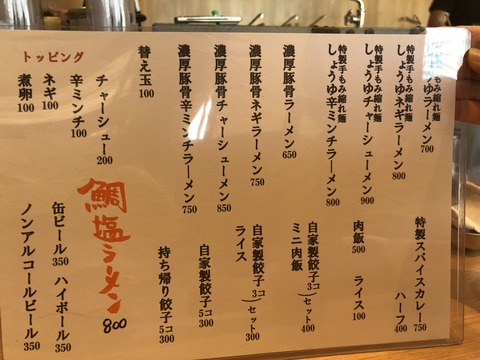 特製手もみ縮れ麺
しょうゆラーメン700
特製手もみ縮れ麺
しょうゆネギラーメン800
特製手もみ縮れ麺
しょうゆチャーシューメン900
特製手もみ縮れ麺
しょうゆ辛ミンチラーメン800
濃厚豚骨ラーメン650
濃厚豚骨ネギラーメン750
濃厚豚骨チャーシューメン850
濃厚豚骨辛ミンチラーメン750
替え玉100
トッピング
チャーシュー200
辛ミンチ100
ネギ100
煮卵100
特製スパイスカレー750
ハーフ400
肉飯500
ライス100
自家製餃子3コ
ミニ肉飯
セット400
自家製餃子3コ
ライス
セット300
自家製餃子5コ300
持ち帰り餃子5コ300
鯛塩ラーメン800
缶ビール350
ハイボール350
ノンアルコールビール350